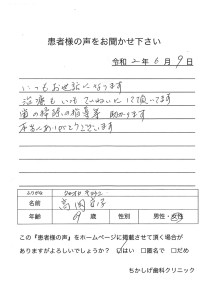 患者様の声をお聞かせ下さい
令和 2年 6月 9日
いつもお世話になります
治療もいつもていねいにして頂いてます
歯の掃除の指導等 助かります
本当にありがとうございます
ふりがな
名前
年齢 歳 性別 男性・女性
この『患者様の声』をホームページに掲載させて頂く場合が
ありますがよろしいでしょうか? ☑はい □匿名で □だめ
ちかしげ歯科クリニック